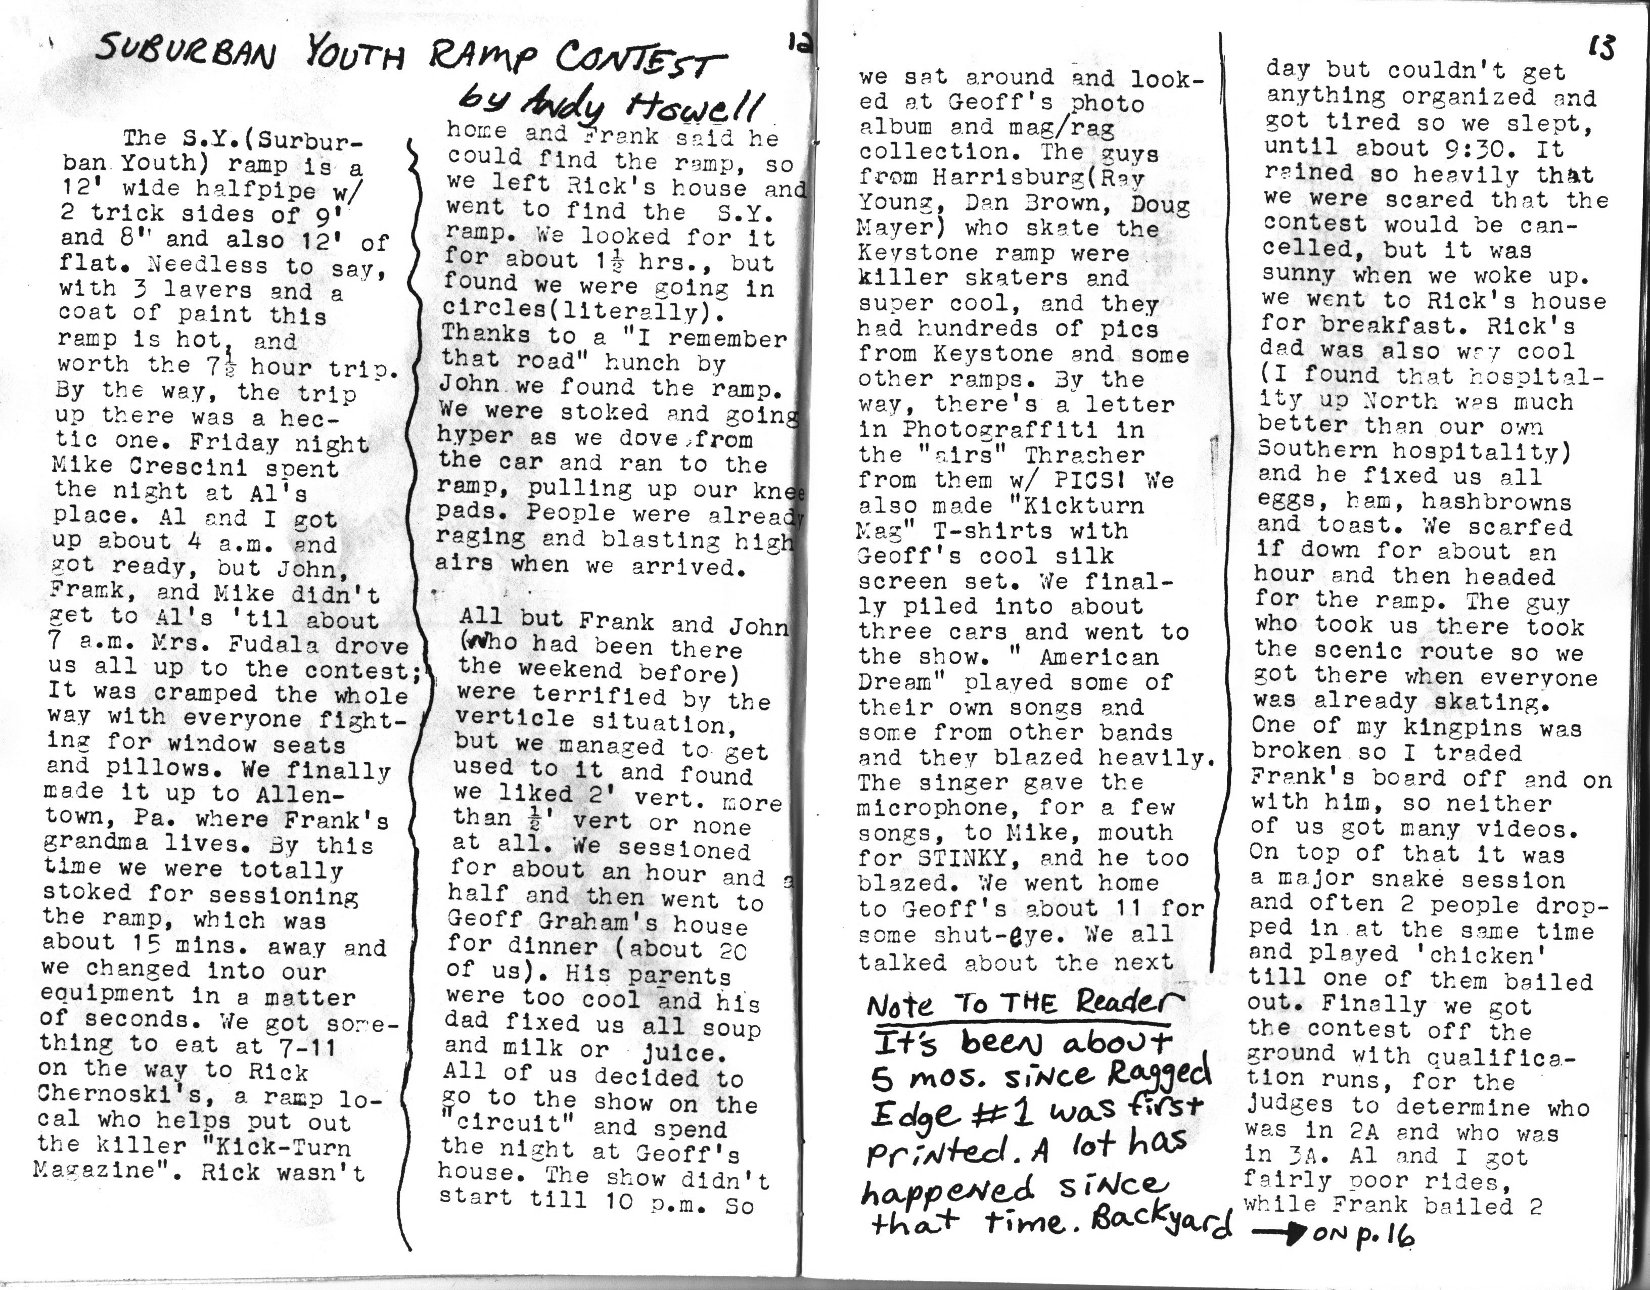 SUBURBAN YOUTH RAMP CONTEST
by Andy Howell
12
The S.Y.(Surbur-
ban Youth) ramp is a
12' wide halfpipe w/
2 trick sides of 9'
and 8" and also 12' of
flat. Needless to say,
with 3 layers and a
coat of paint this
ramp is hot, and
worth the 7½ hour trip.
By the way, the trip
up there was a hec-
tic one. Friday night
Mike Crescini spent
the night at Al's
place. Al and I got
up about 4 a.m. and
got ready, but John,
Framk, and Mike didn't
get to Al's 'til about
7 a.m. Mrs. Fudala drove
us all up to the contest;
It was cramped the whole
way with everyone fight-
ing for window seats
and pillows. We finally
made it up to Allen-
town, Pa. where Frank's
grandma lives. By this
time we were totally
stoked for sessioning
the ramp, which was
about 15 mins. away and
we changed into our
equipment in a matter
of seconds. We got some-
thing to eat at 7-11
on the way to Rick
Chernoski's, a ramp lo-
cal who helps put out
the killer "Kick-Turn
Magazine". Rick wasn't
home and Frank said he
could find the ramp, so
we left Rick's house and
went to find the S.Y.
ramp. We looked for it
for about 1½ hrs., but
found we were going in
circles(literally).
Thanks to a "I remember
that road" hunch by
John we found the ramp.
We were stoked and going
hyper as we dove from
the car and ran to the
ramp, pulling up our knee
pads. People were already
raging and blasting high
airs when we arrived.
All but Frank and John
(Who had been there
the weekend before)
were terrified by the
verticle situation,
but we managed to get
used to it and found
we liked 2' vert. more
than ½' vert or none
at all. We sessioned
for about an hour and a
half and then went to
Geoff Graham's house
for dinner (about 20
of us). His parents
were too cool and his
dad fixed us all soup
and milk or juice.
All of us decided to
go to the show on the
"circuit" and spend
the night at Geoff's
house. The show didn't
start till 10 p.m. So
we sat around and look-
ed at Geoff's photo
album and mag/rag
collection. The guys
from Harrisburg(Ray
Young, Dan Brown, Doug
Mayer) who skate the
Keystone ramp were
killer skaters and
super cool, and they
had hundreds of pics
from Keystone and some
other ramps. By the
way, there's a letter
in Photograffiti in
the "airs" Thrasher
from them w/ PICS! We
also made "Kickturn
Mag" T-shirts with
Geoff's cool silk
screen set. We final-
ly piled into about
three cars and went to
the show. " American
Dream" played some of
their own songs and
some from other bands
and they blazed heavily.
The singer gave the
microphone, for a few
songs, to Mike, mouth
for STINKY, and he too
blazed. We went home
to Geoff's about 11 for
some shut-eye. We all
talked about the next
Note To THE Reader
It's been about
5 mos. since Ragged
Edge #1 was first
printed. A lot has
happened since
that time. Backyard
→ ON p.16
13
day but couldn't get
anything organized and
got tired so we slept,
until about 9:30. It
rained so heavily that
we were scared that the
contest would be can-
celled, but it was
sunny when we woke up.
we went to Rick's house
for breakfast. Rick's
dad was also way cool
(I found that hospital-
ity up North was much
better than our own
Southern hospitality)
and he fixed us all
eggs, ham, hashbrowns
and toast. We scarfed
if down for about an
hour and then headed
for the ramp. The guy
who took us there took
the scenic route so we
got there when everyone
was already skating.
One of my kingpins was
broken so I traded
Frank's board off and on
with him, so neither
of us got many videos.
On top of that it was
a major snake session
and often 2 people drop-
ped in at the same time
and played 'chicken'
till one of them bailed
out. Finally we got
the contest off the
ground with qualifica-
tion runs, for the
judges to determine who
was in 2A and who was
in 3A. Al and I got
fairly poor rides,
while Frank bailed 2